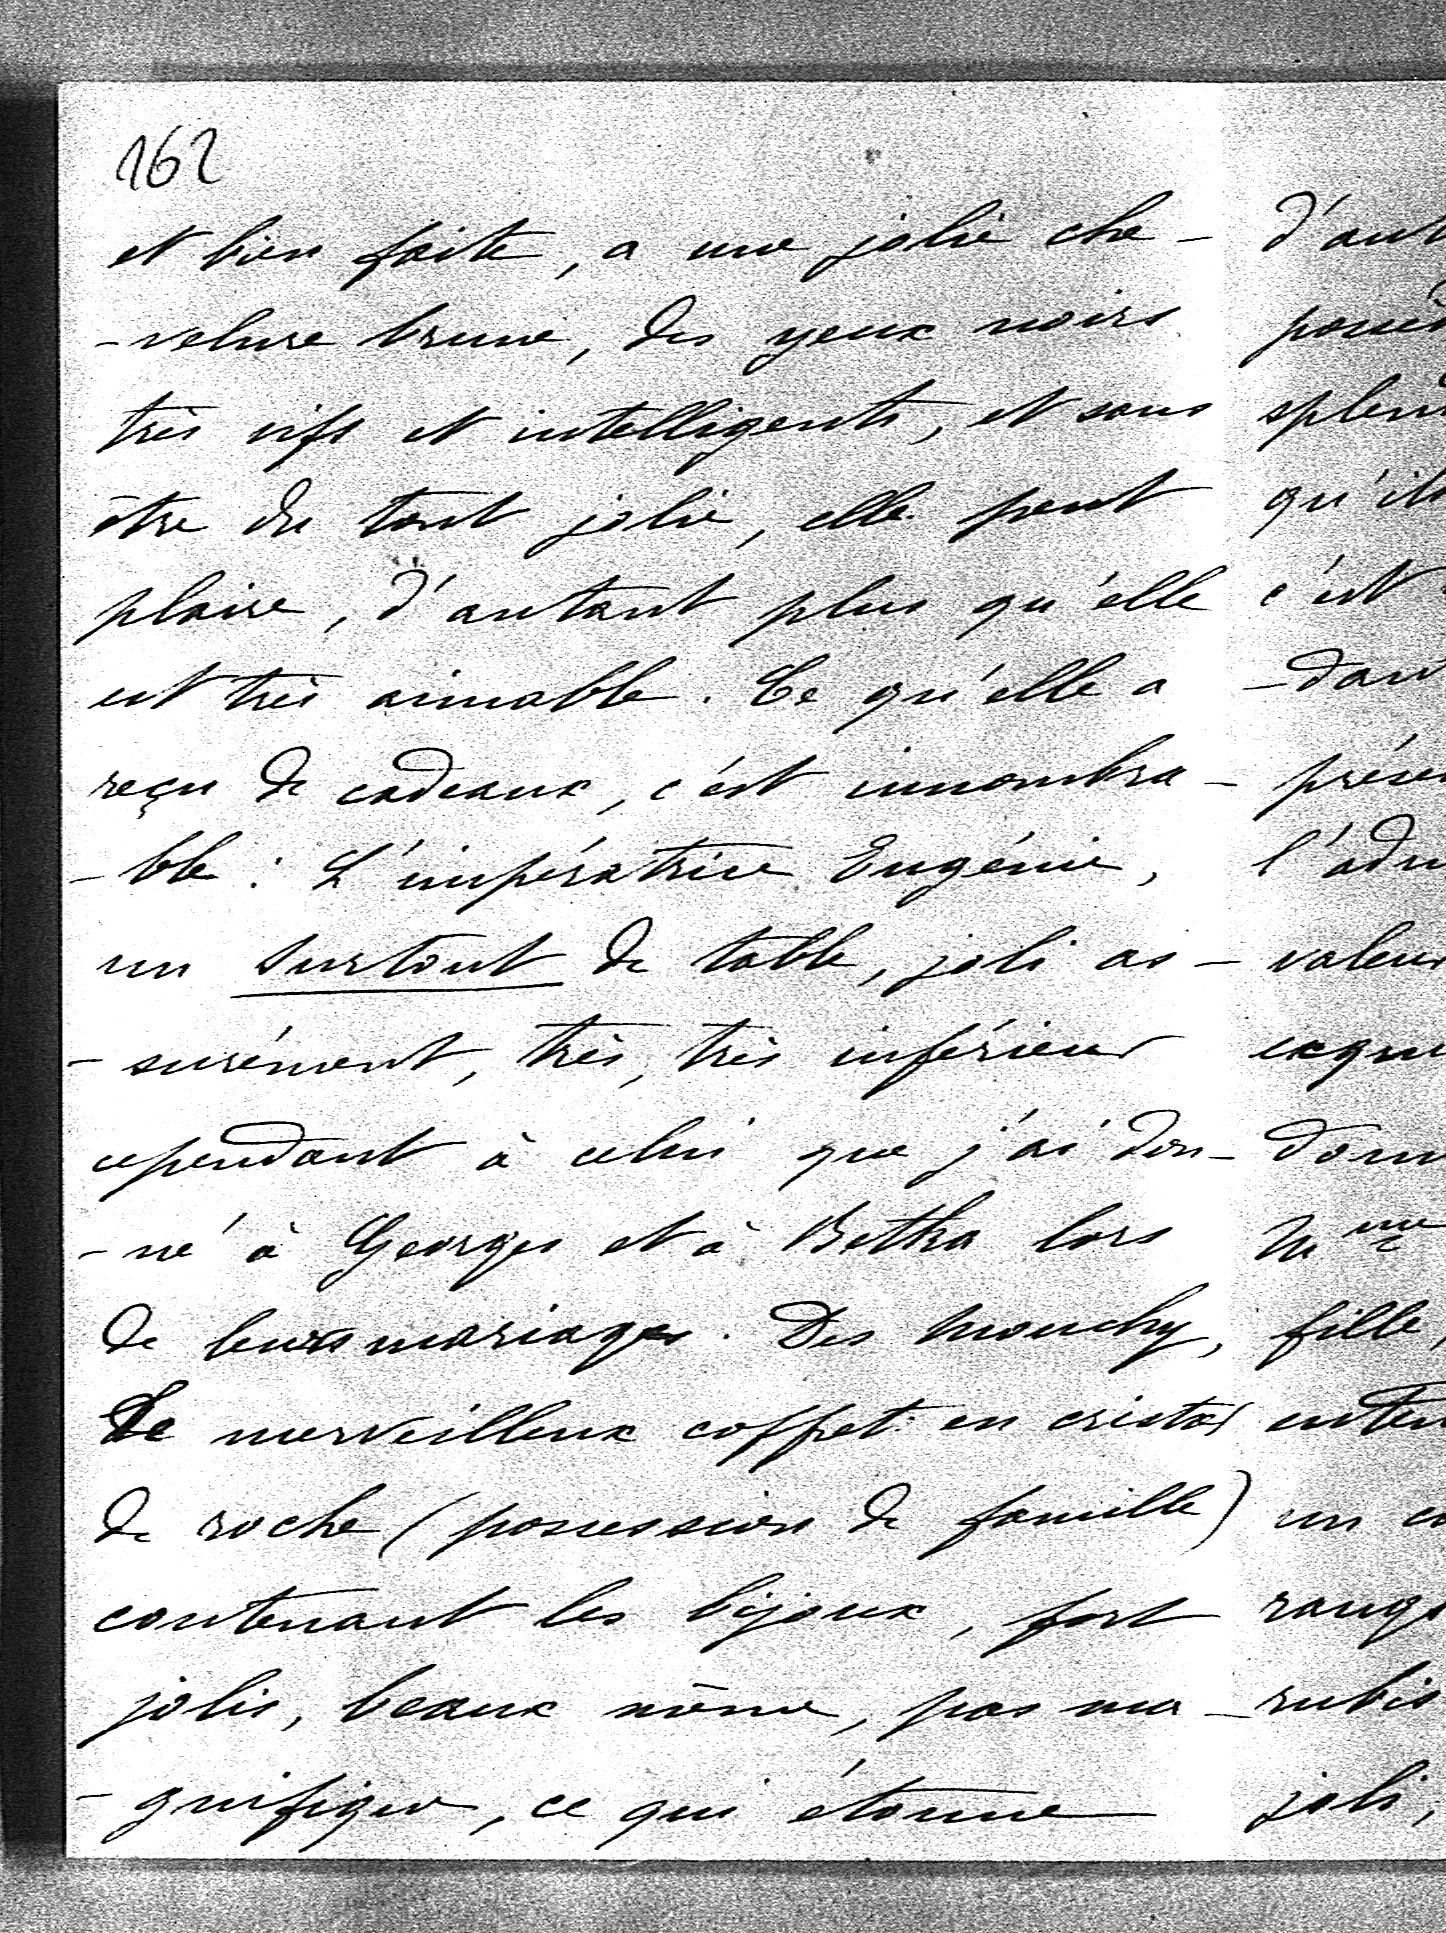 162
et bien faite, a une jolie che-
-velure brune, des yeux noirs
très vifs et intelligents, et sans
être du tout jolie, elle peut
plaire, d'autant plus qu'elle
est très aimable. Ce qu'elle a
reçu de cadeaux, c'est innombra-
-ble : L'impératrice Eugénie,
un surtout de table, joli as-
-surément, très, très inférieur
cependant à celui que j'ai don-
-né à Georges et à Betka lors
de leurs mariages. Des Mouchy,
Le merveilleux coffret en cristal
de roche (possession de famille)
contenant les bijoux, fort
jolis, beaux même, pas ma-
-gnifiques, ce qui étonne
d'aut
possèd
splend
qu'ils
c'est
-dan
prése
l'adm
valeur
exqui
donn
Mme
fille,
enten
un co
rangs
rubis
joli,